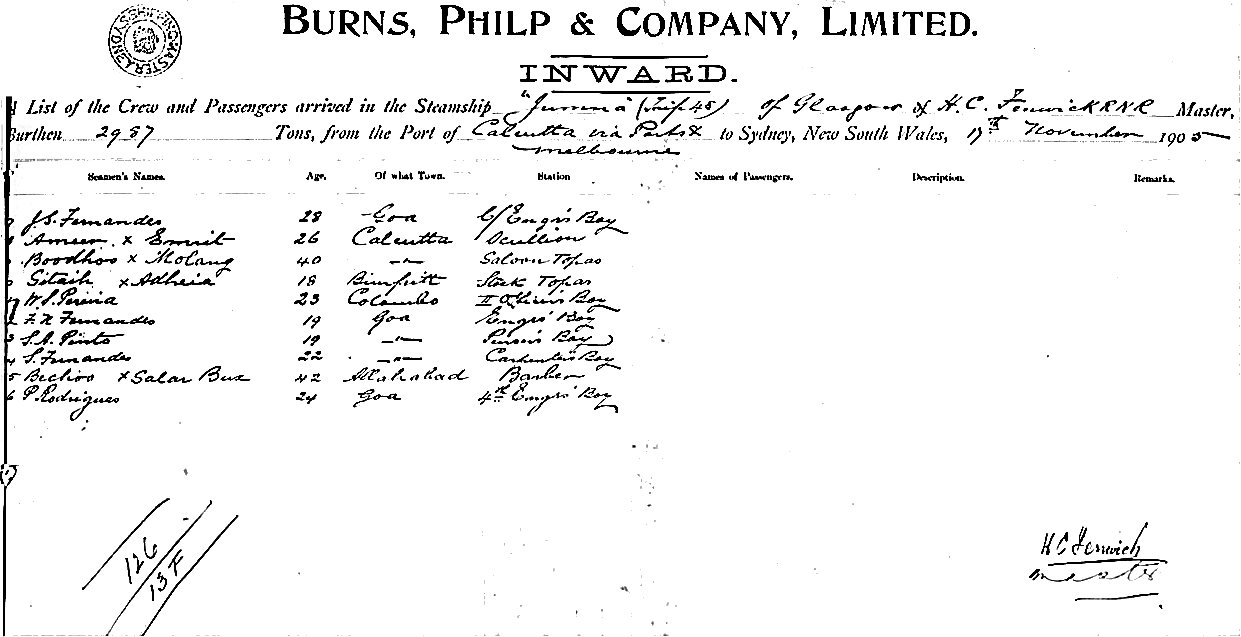 SHIPPING MASTER SYDNEY
BURNS, PHILP & COMPANY, LIMITED.
INWARD.
List of the Crew and Passengers arrived in the Steamship "Jumna" (Trip 45) of Glasgow of H. C. Fenwick RNR Master,
Burthen 2987 Tons, from the Port of Calcutta via Ports & to Sydney, New South Wales, 17th November 1905
Melbourne
Seamen's Names. Age. Of what Town. Station Names of Passengers. Description. Remarks.
J.S. Fernandes 28 Goa C/Engr's Boy
Ameer x Emrit 26 Calcutta Scullion
Boodhoo x Molang 40 -"- Saloon Topas
Sitaih x Adheia 18 Topas
W.S. Pereira 23 Colombo II Officer's Boy
F.X. Fernandes 19 Goa Engrs' Boy
S.A. Pinto 19 -"- Purser's Boy
S. Fernandes 22 -"- Carpenter's Boy
5 Bechoo x Salar Bux 42 Allahabad Barber
6 P. Rodrigues 24 Goa 4th Engrs' Boy
126
13 F
H C Fenwick
Master